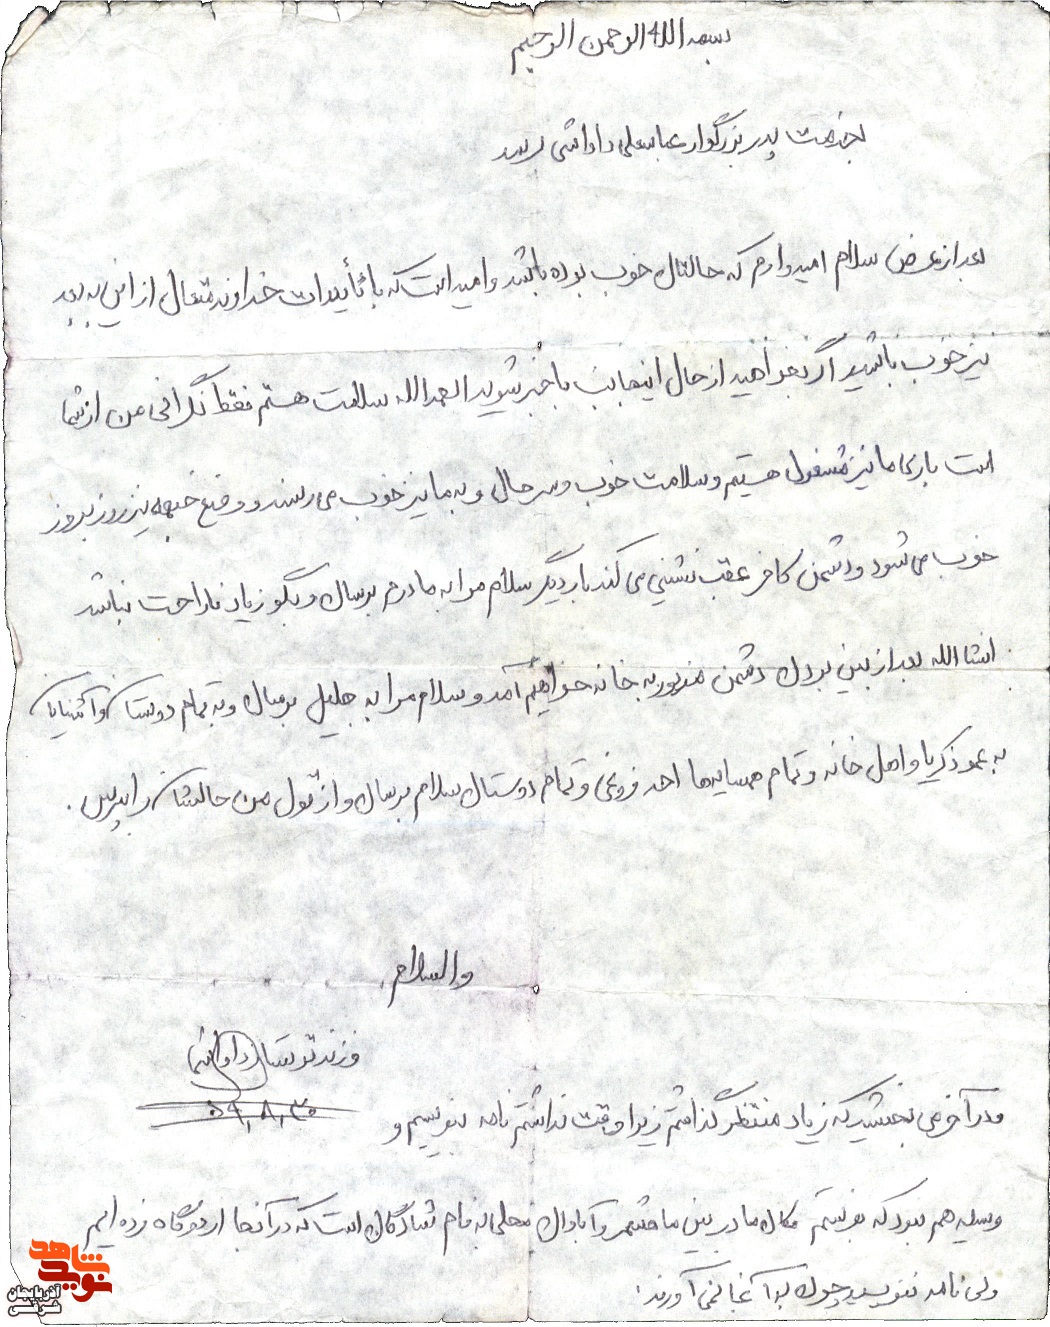 بسمه الله الرحمن الرحیم
بخدمت پدر بزرگوار عباسعلی داداشی برسد
بعد از عرض سلام امیدوارم که حالتان خوب بوده باشد و امید است که با تأییدات خداوند متعال از این به بعد
نیز خوب باشید اگر بخواهید از حال اینجانب با خبر شوید الحمدالله سلامت هستم فقط نگرانی من از شما
است باری ما نیز مشغول هستیم و سلامت خوب و سرحال و به ما نیز خوب می رسند و وضع جبهه نیز روز بروز
خوب می شود و دشمن کافر عقب نشینی می کند بار دیگر سلام مرا به مادرم برسان و بگو زیاد ناراحت نباشد
انشا الله بعد از بین بردن دشمن مزبور به خانه خواهیم آمد و سلام مرا به جلیل برسان و به تمام دوستان و آشنایان
به عمو ذکریا و اهل خانه و تمام همسایه ها احد فروغی و تمام دوستان سلام برسان و از قول من حالشان را بپرس .
والسلام
فرزند تو
۵۹،۸،۳۰
در آخر می بخشید که زیاد منتظر گذاشتم زیرا وقت نداشتم نامه بنویسم و
وسیله هم نبود که بفرستم مکان ما در بین ماهشهر و آبادان محلی به نام شادگان است که در آنجا اردوگاه زده ایم
ولی نامه ننویسید چون به آنجا نمی آورند.
نوید شاهد
آذربایجان
شرقی